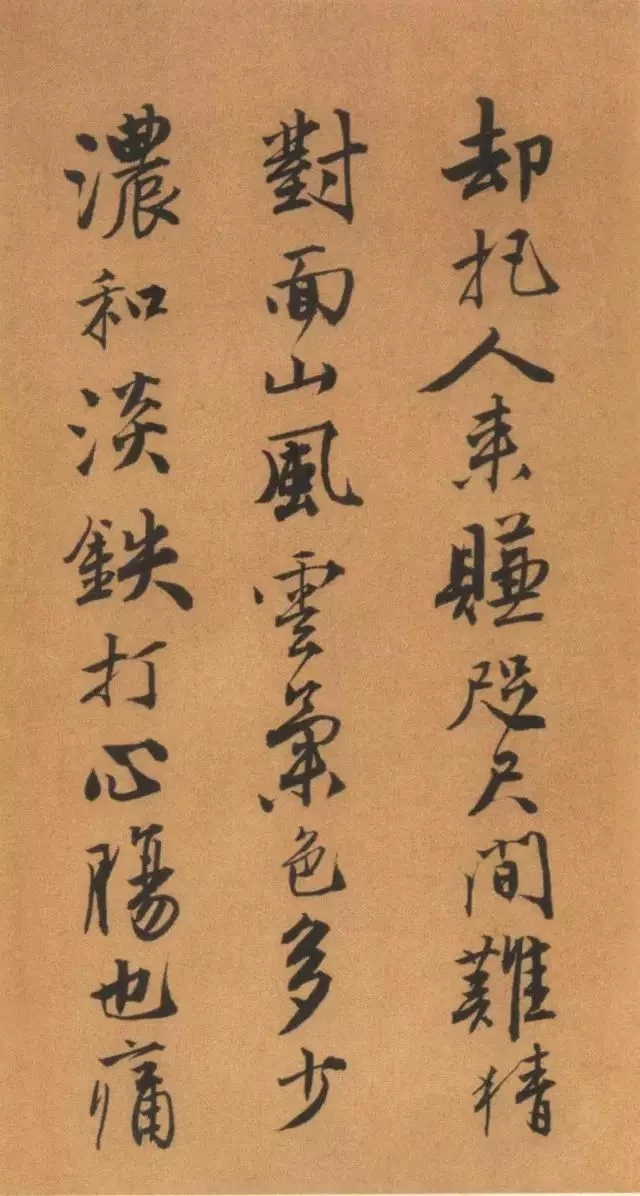 却把人来賺咫尺間難猜
對面山風雲氣色多少
濃和淡鉄打心腸也痛